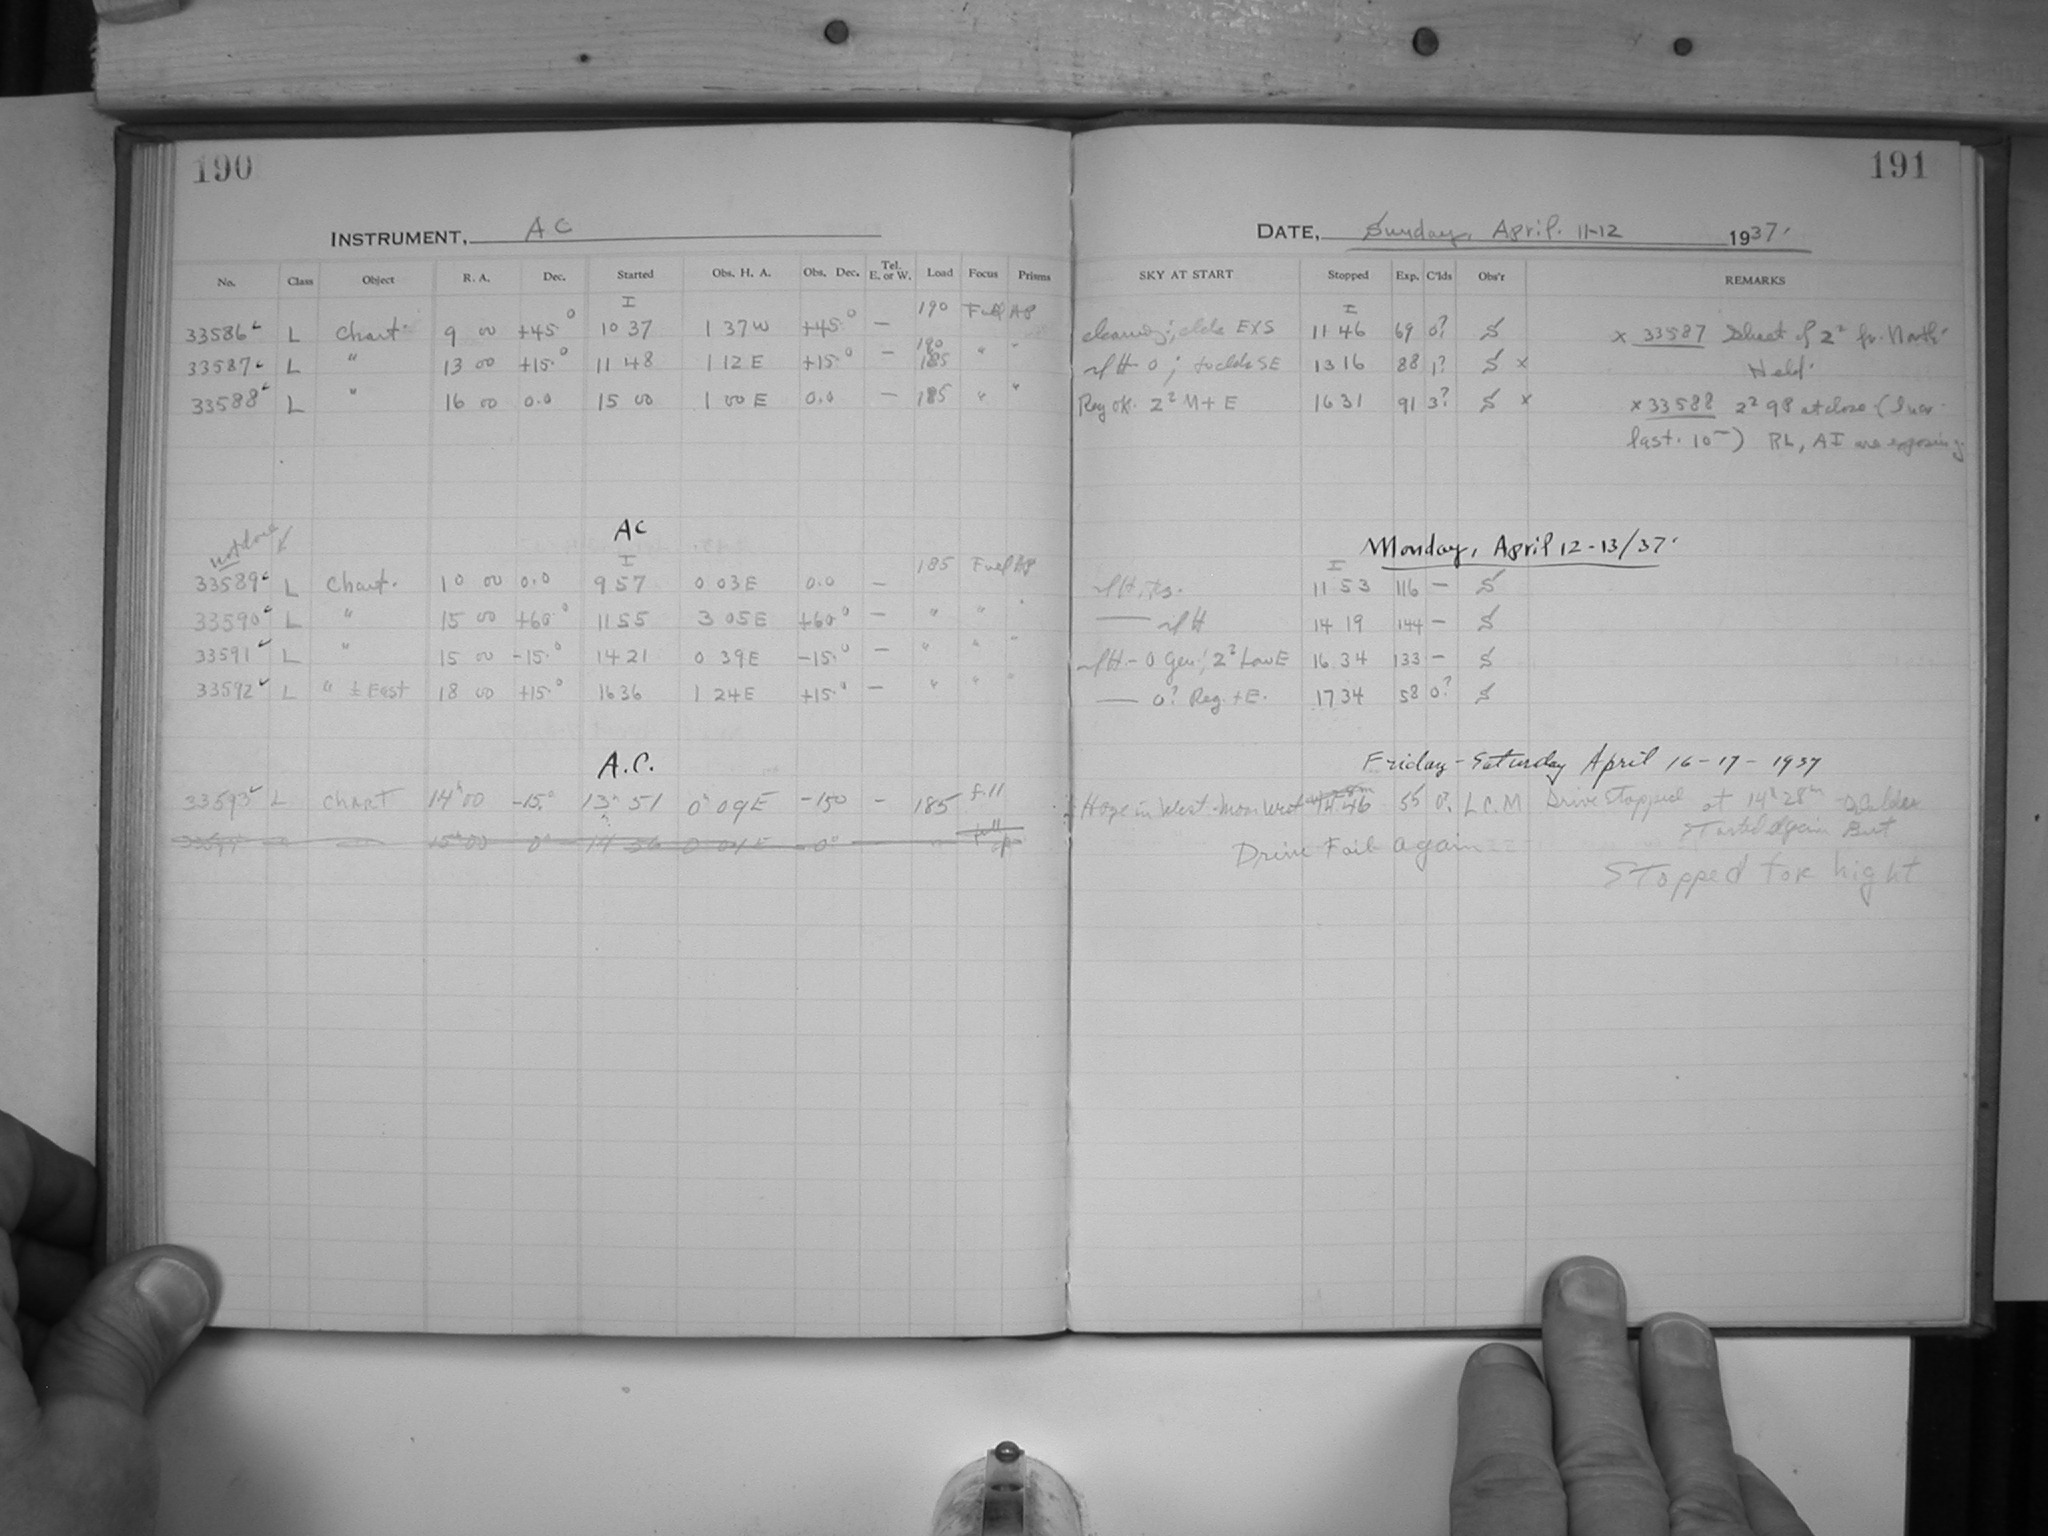 190
INSTRUMENT, AC
No. Class Object R. A. Dec. Started Obs. H. A. Obs. Dec. Tel. E. or W. Load Focus Prisms
I 190 Full AP
33586 L Chart. 9 00 +45.° 10 37 1 37 W +45.° —
33587 L " 13 00 +15.° 11 48 1 12 E +15.° — 190 185 " "
33588 L " 16 00 0.0 15 00 1 00 E 0.0 — 185 " "
AC
not done
I 185 Full AP
33589 L Chart. 10 00 0.0 9 57 0 03 E 0.0 —
33590 L " 15 00 +60.° 11 55 3 05 E +60.° — " " "
33591 L " 15 00 -15.° 14 21 0 39 E -15.° — " " "
33592 L " ½ East 18 00 +15.° 16 36 1 24 E +15.° — " " "
A.C.
33593 L CHART 14ʰ00 -15.° 13ʰ 51 0ʰ 09 E -150 — 185 full
33594 15ʰ00 0° 14 56 0 04 E 0°
191
DATE, Sunday, April. 11-12 1937.
SKY AT START Stopped Exp. C'lds Obs'r REMARKS
I
clearing; clds EXS 11 46 69 0? S x 33587 Sheet of 2² fr. North.
H-0; SE 13 16 88 1? S x Held.
Reg ok. 2² M + E 16 31 91 3? S x x 33588 2² 98 at close (Incr.
last. 10ᵐ) RL, AI are exposing
Monday, April 12-13/37.
I
H, 11 53 116 — S
— H 14 19 144 — S
H - 0 Gen; 2² Low E 16 34 133 — S
— 0? Reg. + E. 17 34 58 0? S
Friday - Saturday April 16 - 17 - 1937
Haze in West - moon West 14.46 55 0? L.C.M Drive stopped at 14ʰ 28ᵐ
started again But
Drive Fail again
Stopped for night